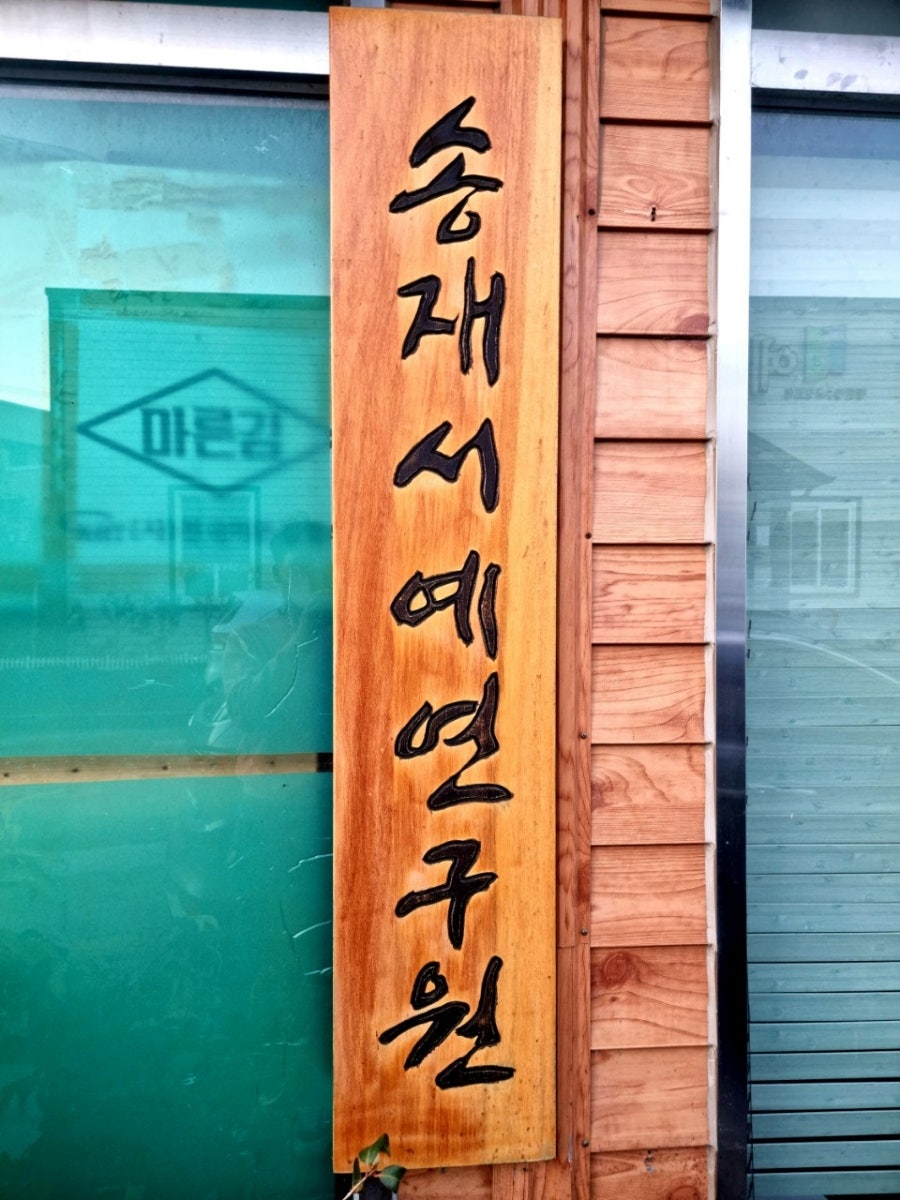 송재서예연구원
마른김